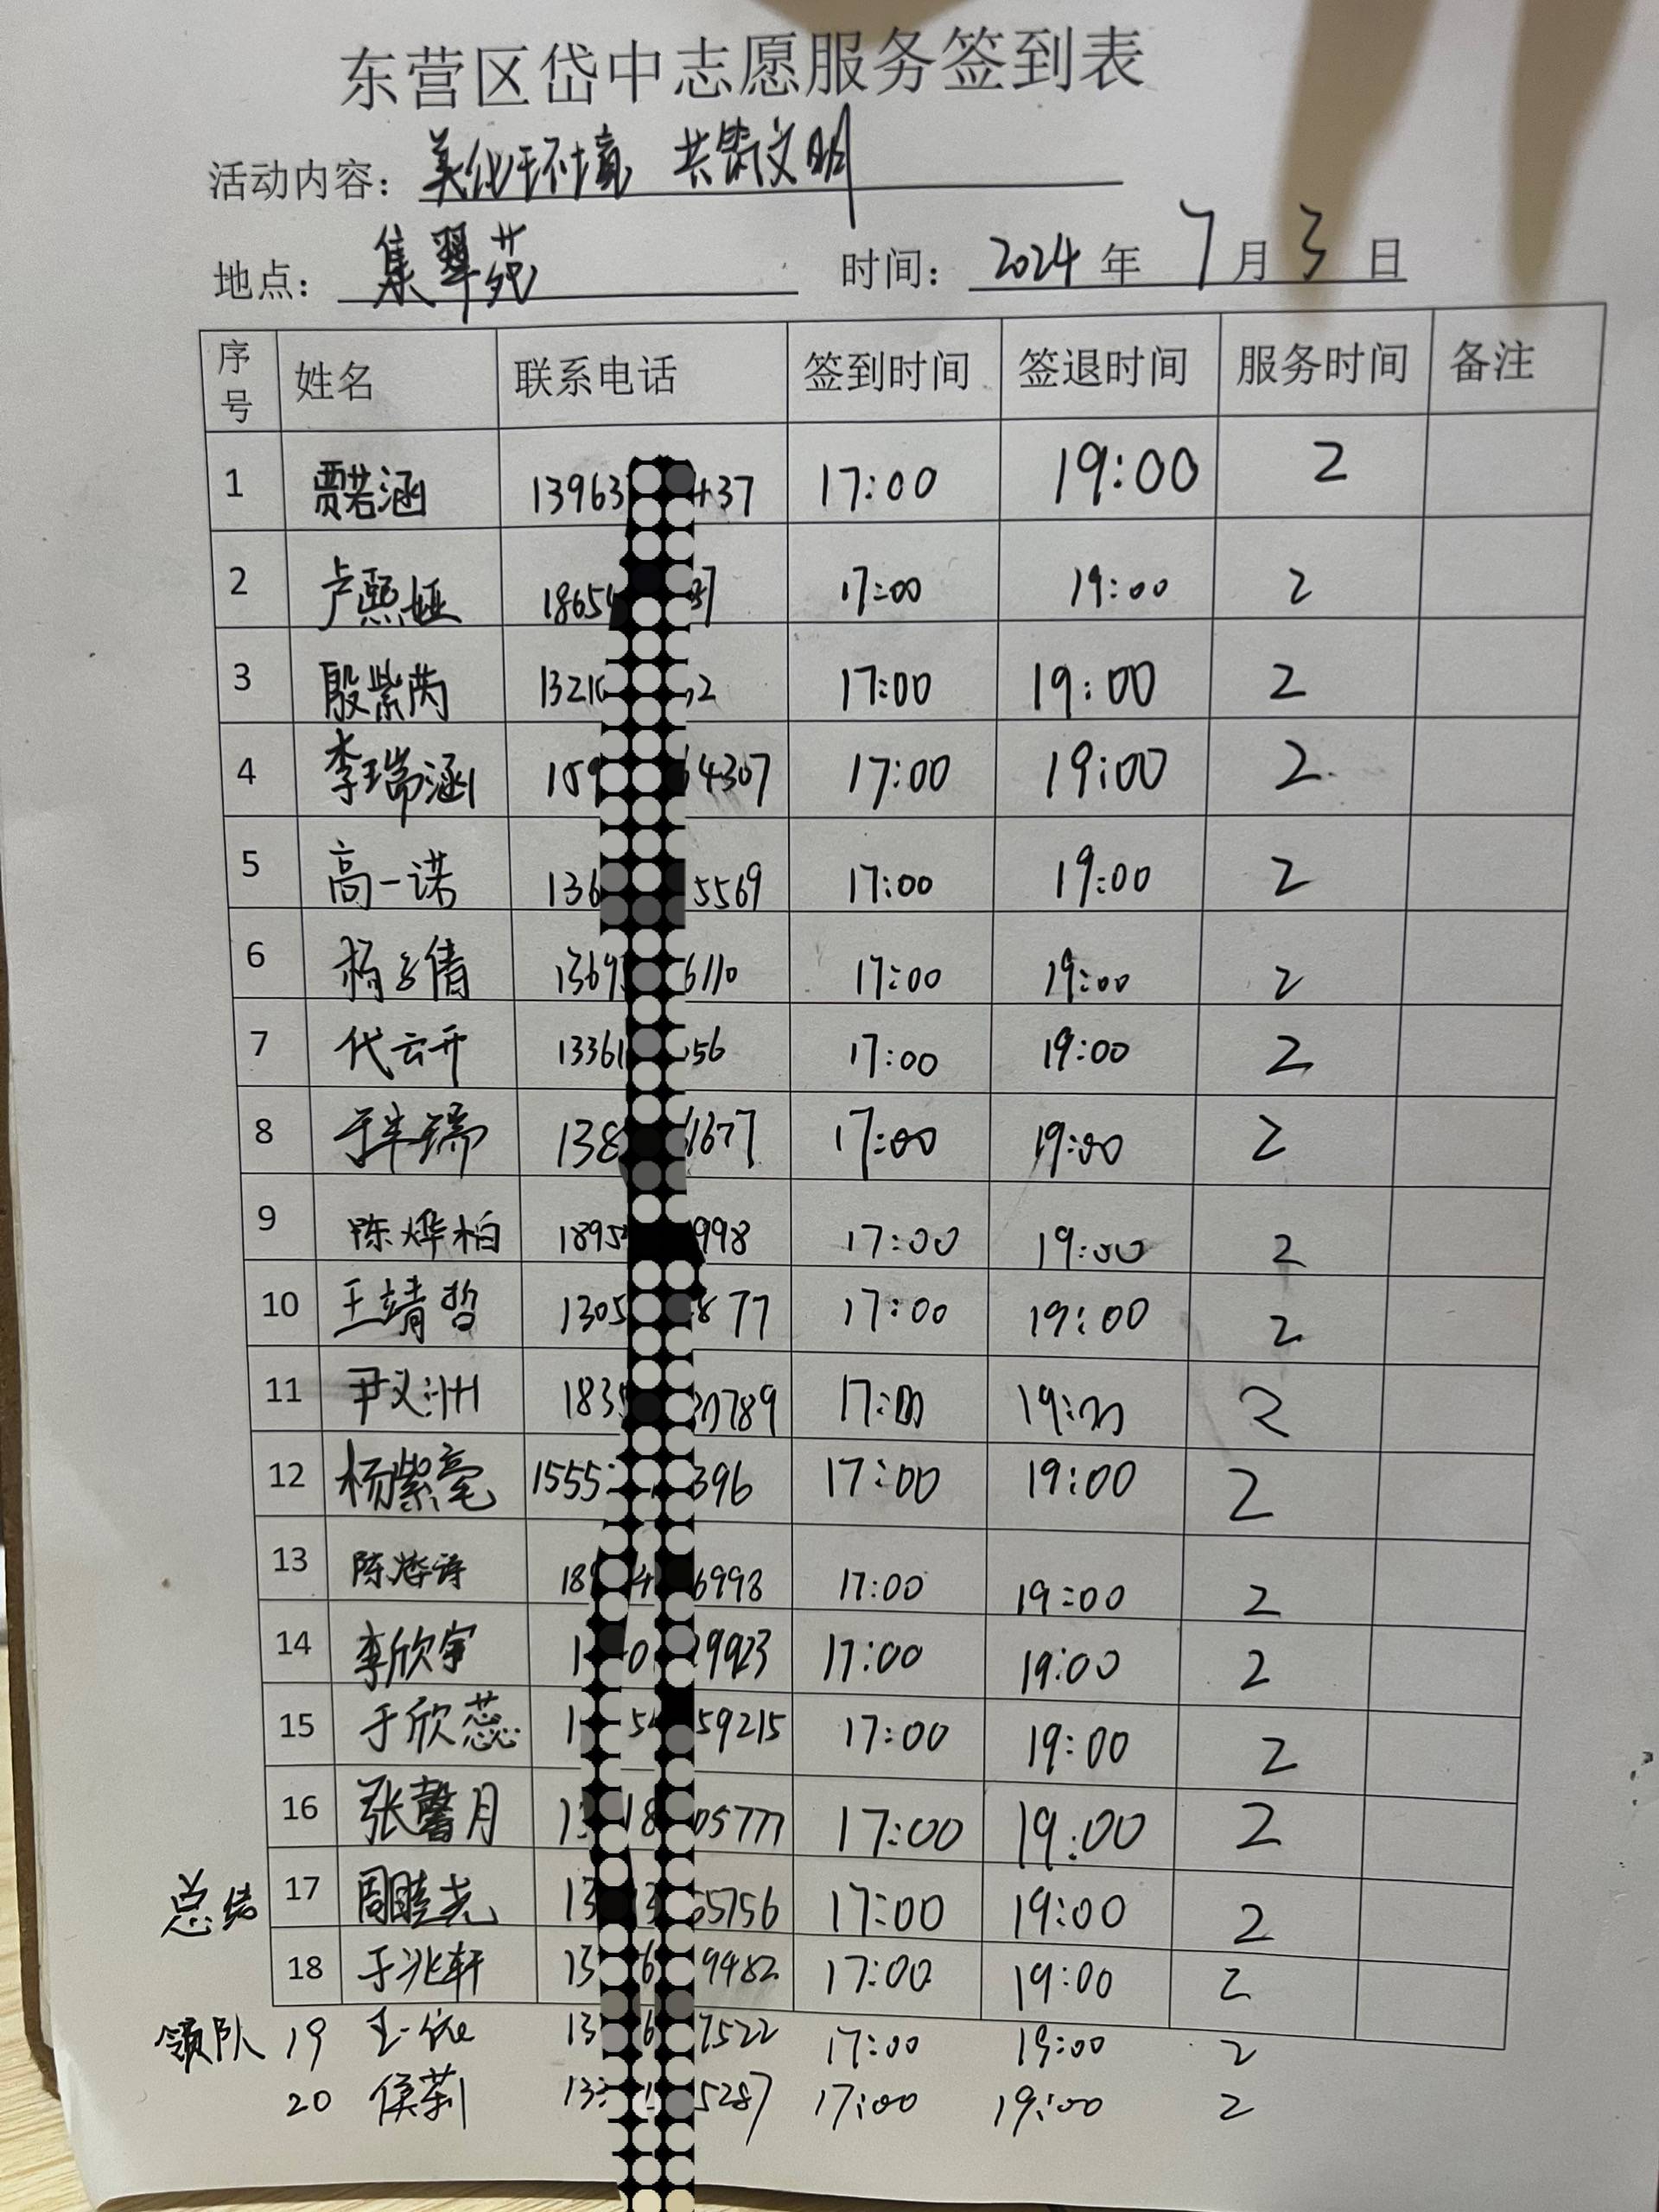 东营区岱中志愿服务签到表
活动内容：美化环境 共筑文明
地点：集翠苑 时间：2024年7月3日
序号 姓名 联系电话 签到时间 签退时间 服务时间 备注
1 贾若涵 13963 437 17:00 19:00 2
2 卢熙娅 1865 37 17:00 19:00 2
3 殷紫芮 1321 2 17:00 19:00 2
4 李瑞涵 159 4307 17:00 19:00 2
5 高一诺 136 5569 17:00 19:00 2
6 杨 倩 1369 6110 17:00 19:00 2
7 代云开 13361 56 17:00 19:00 2
8 于 瑞 138 1677 17:00 19:00 2
9 陈烨柏 1895 998 17:00 19:00 2
10 王靖哲 1305 877 17:00 19:00 2
11 尹义洲 183 0789 17:00 19:00 2
12 杨紫毫 1555 396 17:00 19:00 2
13 陈烨诗 18 4 6998 17:00 19:00 2
14 李欣宇 1 0 9923 17:00 19:00 2
15 于欣蕊 1 5 59215 17:00 19:00 2
16 张馨月 13 18 05777 17:00 19:00 2
总结 17 周 尧 13 3 55756 17:00 19:00 2
18 于兆轩 13 6 9482 17:00 19:00 2
领队 19 王一依 13 6 7522 17:00 19:00 2
20 侯莉 133 5287 17:00 19:00 2